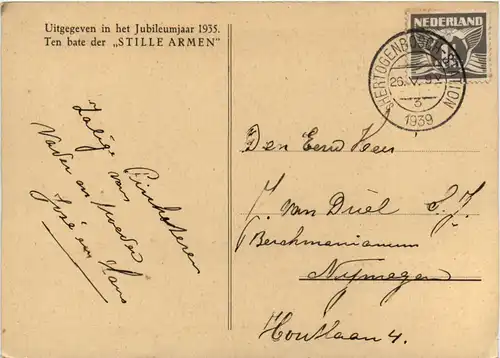 Uitgegeven in het Jubileumjaar 1935.
Ten bate der „STILLE ARMEN"
Zalig Pinksteren
van
Vader en Moeder
José en Hans
NEDERLAND
'S HERTOGENBOSCH-STATION
26.V.
3
1939
Den Eerw Heer
J. van Driel S.J.
Berchmanianum
Nijmegen
Houtlaan 4.